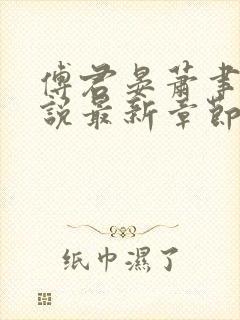 傅君晏萧聿
说最新章节
纸巾濕了